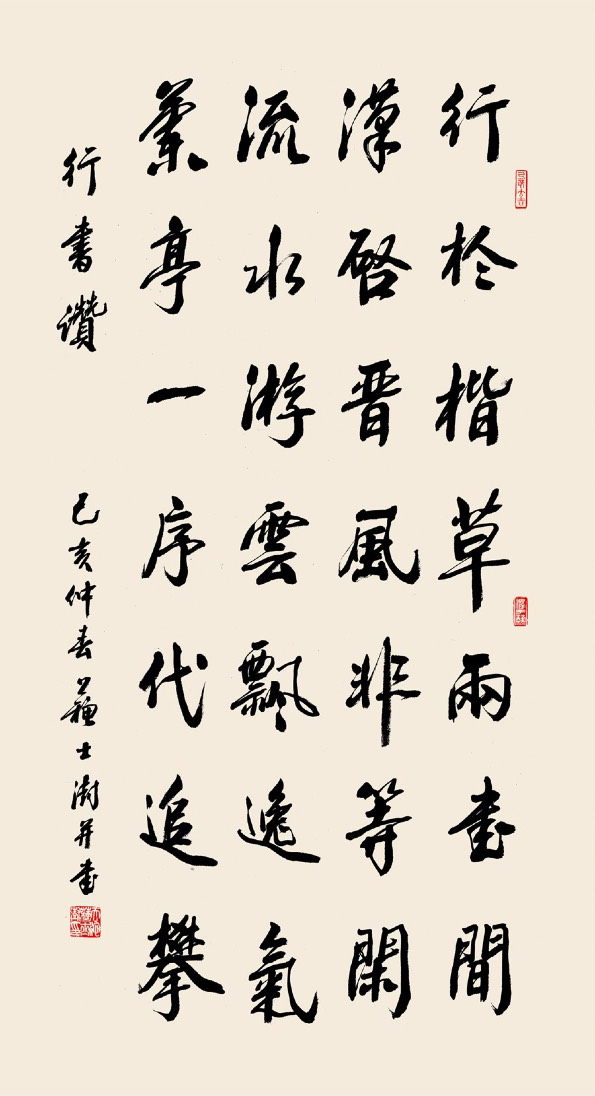 行於楷草兩書間
漢啓晉風非等閑
流水游雲飄逸氣
蘭亭一序代追攀
行書讚
己亥仲春蘇士澍并書